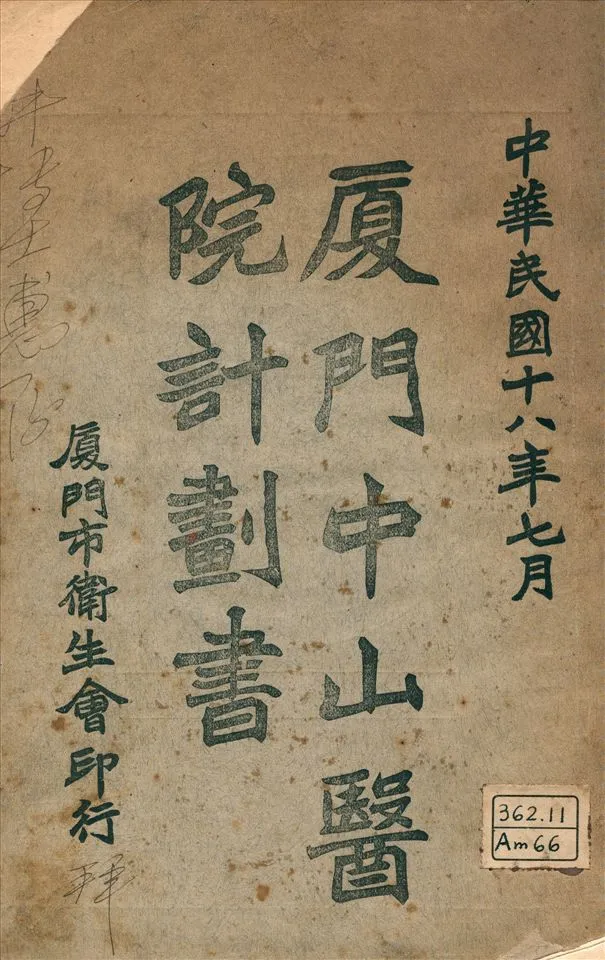 中華民國十八年七月
廈門中山醫
院計劃書
廈門市衛生會印行
362.11
Am66